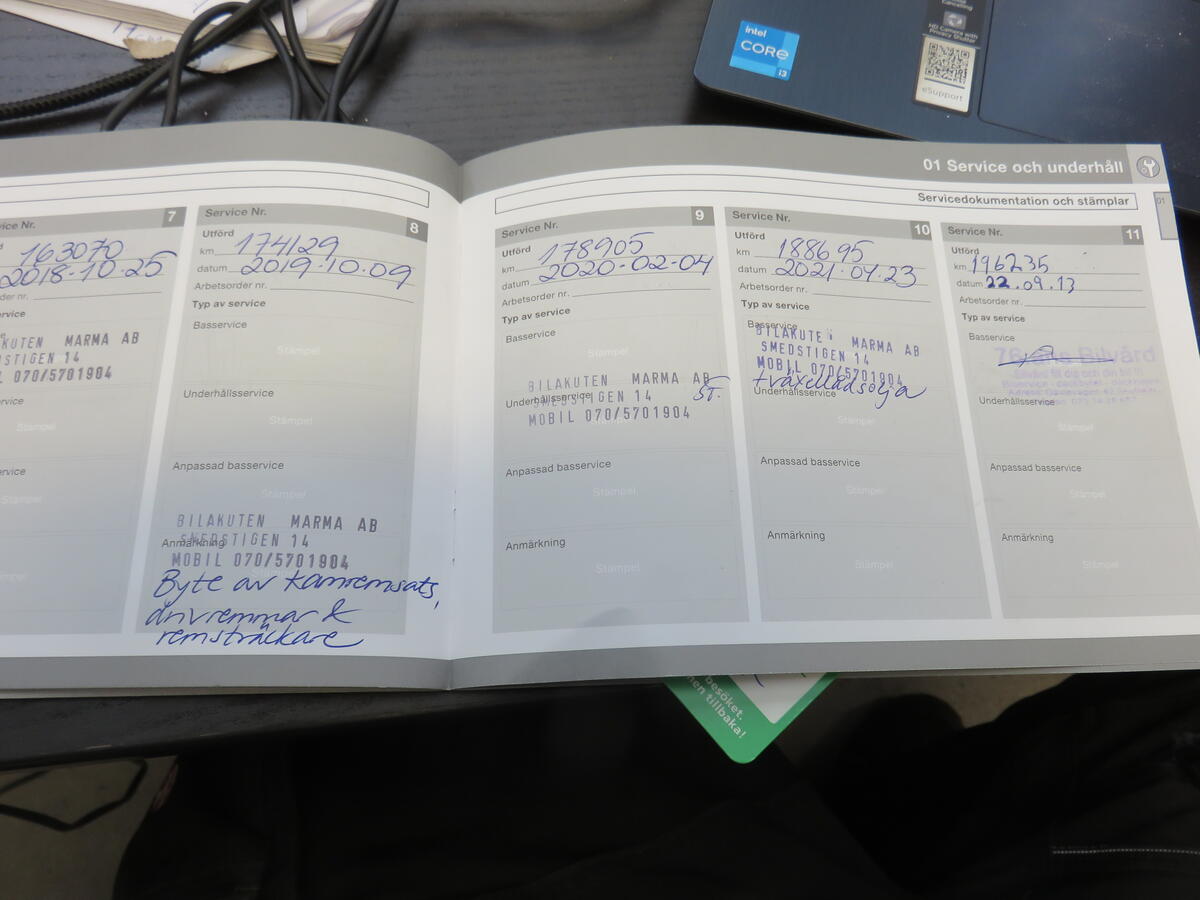 Cancelling
HD Camera with
Privacy Shutter
intel
CORE
i3
eSupport
01 Service och underhåll
Servicedokumentation och stämplar
01
7
163070
2018-10-25
der nr.
MARMA AB
STIGEN 14
070/5701904
Stämpel
Stämpel
Stämpel
Service Nr. 8
Utförd
km 174129
datum 2019-10-09
Arbetsorder nr.
Typ av service
Basservice
Stämpel
Underhållsservice
Stämpel
Anpassad basservice
Stämpel
BILAKUTEN MARMA AB
SMEDSTIGEN 14
Anmärkning
MOBIL 070/5701904
Byte av kamremsats,
drivremmar &
remsträckare
Service Nr. 9
Utförd
km 178905
datum 2020-02-04
Arbetsorder nr.
Typ av service
Basservice
Stämpel
BILAKUTEN MARMA AB
SMEDSTIGEN 14
ST.
Underhållsservice
MOBIL 070/5701904
Stämpel
Anpassad basservice
Stämpel
Anmärkning
Stämpel
Service Nr. 10
Utförd
km 188695
datum 2021.04.23
Arbetsorder nr.
Typ av service
Basservice
BILAKUTEN MARMA AB
SMEDSTIGEN 14
MOBIL 070/5701904
+växellådsolja
Underhållsservice
Stämpel
Anpassad basservice
Stämpel
Anmärkning
Stämpel
Service Nr. 11
Utförd
km 196235
datum 22.09.13
Arbetsorder nr.
Typ av service
Basservice
Bilvård
Underhållsservice
Stämpel
Anpassad basservice
Stämpel
Anmärkning
Stämpel
besöket.
tillbaka!